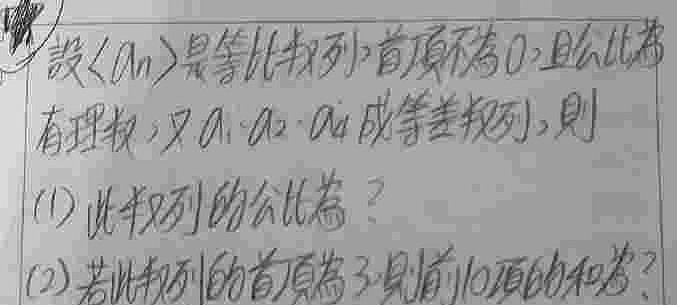 設〈an〉是等比数列，首項不為0，且公比為
有理数，又a1、a2、a4成等差数列，則
(1) 此数列的公比為？
(2) 若此数列的首項為3，則前10項的和為？